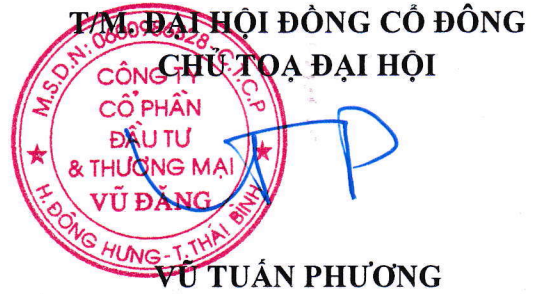 T/M. ĐẠI HỘI ĐỒNG CỔ ĐÔNG
CHỦ TOẠ ĐẠI HỘI
C.T.C.P
CÔNG TY
CỔ PHẦN
ĐẦU TƯ
& THƯƠNG MẠI
VŨ ĐĂNG
H. ĐÔNG HƯNG - T. THÁI BÌNH
VŨ TUẤN PHƯƠNG